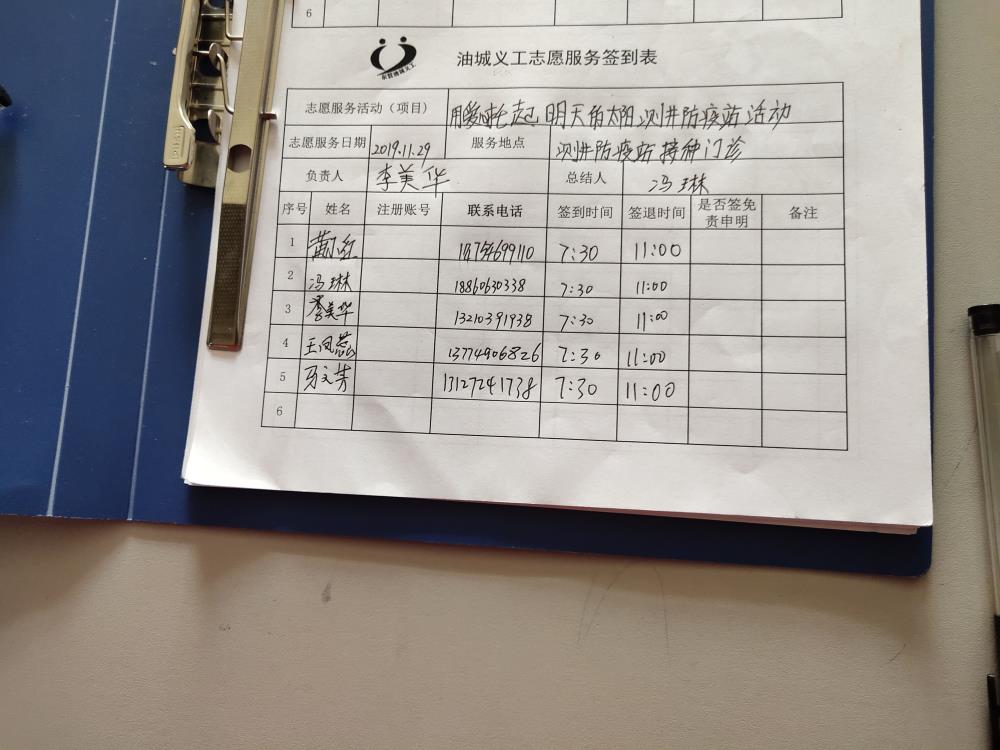 6
油城义工志愿服务签到表
东营油城义工
志愿服务活动（项目） 用爱心托起 明天的太阳 测井防疫站活动
志愿服务日期 2019.11.29 服务地点 测井防疫站接种门诊
负责人 李美华 总结人 冯琳
序号 姓名 注册账号 联系电话 签到时间 签退时间 是否签免责申明 备注
1 7:30 11:00
2 冯琳 18860630338 7:30 11:00
3 李美华 13210391938 7:30 11:00
4 王凤蕊 13774906826 7:30 11:00
5 马文芳 13127241738 7:30 11:00
6